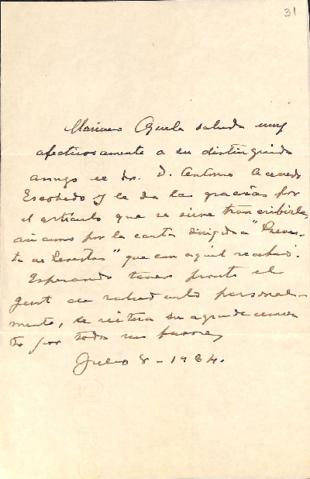 31
Mariano Azuela saluda muy
afectuosamente a su distinguido
amigo el Sr. D. Antonio Acevedo
Escobedo y le da las gracias por
el artículo que se sirve transcribirle,
así como por la carta dirigida a "Revis-
ta de Revistas" que con aquel recibió.
Esperando tener pronto el
gusto de saludarlo personal-
mente, le reitera su agradecimien-
to por todos sus favores
Julio 8 - 1934.